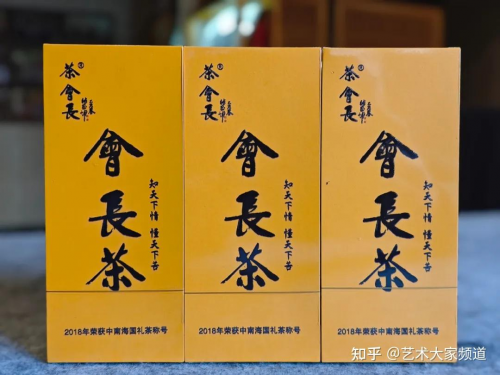 茶會長®
會長茶
知天下情 懂天下茶
2018年荣获中南海国礼茶称号
茶會長®
會長茶
知天下情 懂天下茶
2018年荣获中南海国礼茶称号
茶會長®
會長茶
知天下情 懂天下茶
2018年荣获中南海国礼茶称号
知乎 @艺术大家频道